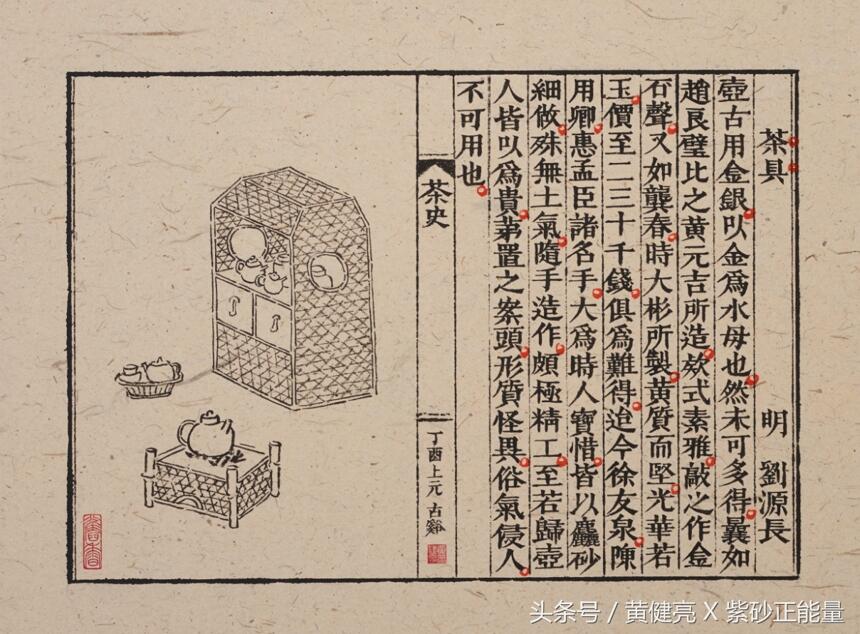 茶具 明 劉源長
壺古用金銀以金爲水母也然未可多得曩如
趙良璧比之黄元吉所造欵式素雅敲之作金
石聲又如龔春時大彬所製黄質而堅光華若
玉價至二三十千錢俱爲難得迨今徐友泉陳
用卿惠孟臣諸名手大爲時人寶惜皆以麤砂
細做殊無土氣隨手造作頗極精工至若歸壺
人皆以爲貴苐置之案頭形質怪異俗氣侵人
不可用也
茶史
丁酉上元 古谿
头条号 / 黄健亮 X 紫砂正能量